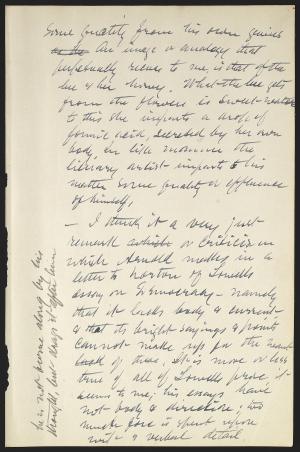 some quality from his own genius
An image or analogy that
perpetually recurs to me, is that of the
bee & her honey. What the bee gets
from the flowers is sweet water
to this she imparts a drop of
formic acid, secreted by her own
body, in like manner the
literary artist imparts to his
matter some quality or effluence
of himself.
— I think it a very just
remark or criticism
which Arnold makes in a
letter to Norton of Lowells
essay on Democracy — namely
that it lacks body & current
& that its bright sayings & points
cannot make up for the want
of these. It is more or less
true of all of Lowells prose it
seems to me; his essays have
not body & direction; too
much force is spent upon
mere verbal detail.
he is not borne along by his
thought, but drags it after him